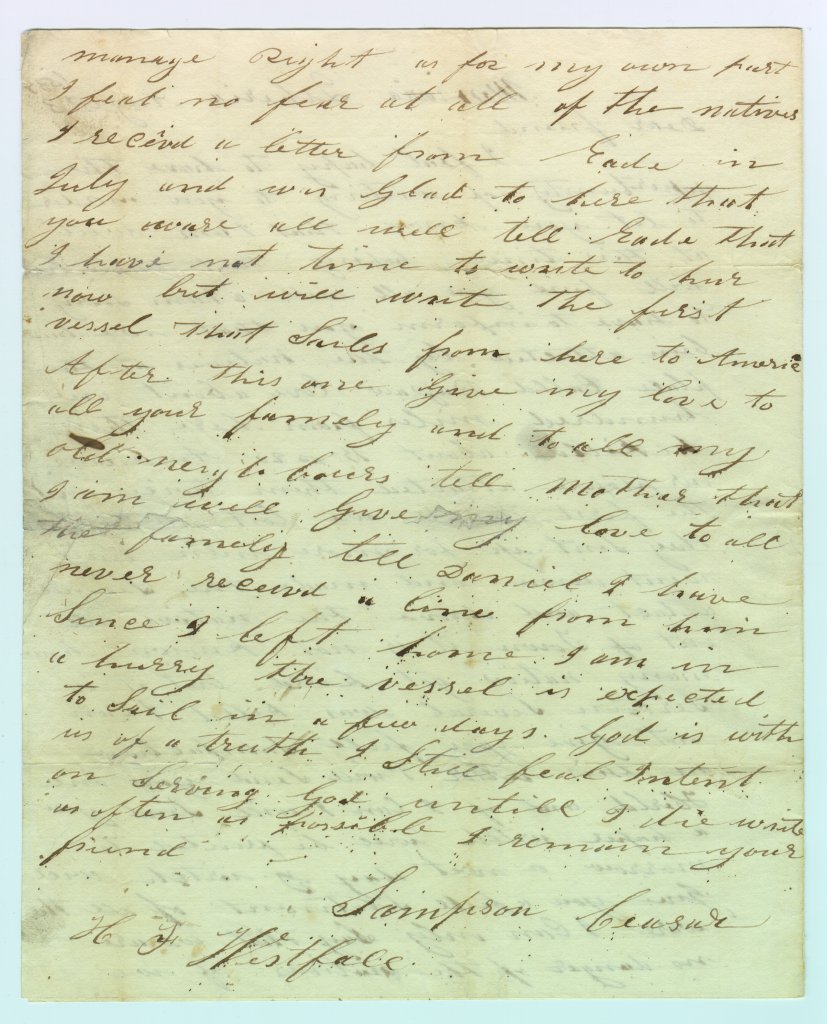 manage Right as for my own part
I feal no fear at all of the natives
I receivd a letter from Eade in
July and was Glad to here that
you ware all well tell Eade that
I have not time to write to hur
now but will write the first
vessel that Sailes from here to Americ
After this one Give my love to
all your famely and to all my
old neyghbours tell Mother that
I am well Give my love to all
the famely tell Daniel I have
never receivd a line from him
Since I left home I am in
a hurry the vessel is expected
to Sail in a few days. God is with
us of a truth I Still feal Intent
on Serving God untill I die write
as often as possible I remain your
friend
Sampson Ceasar
H F Westfall